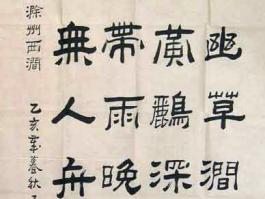 幽草澗
黃鸝深
帶雨晚
無人舟
滁州西澗
乙亥暮秋